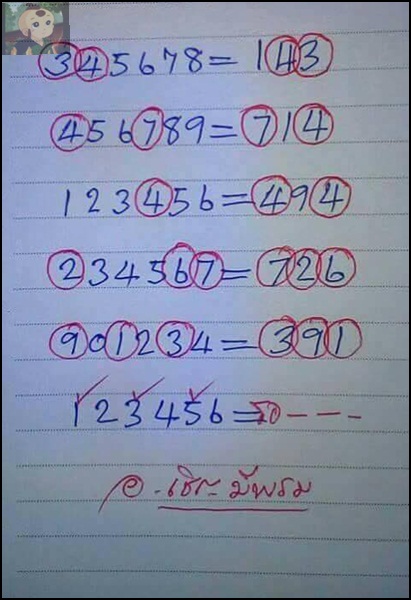 345678= 143
456789=714
123456=494
234567=726
901234=391
123456=รอ---